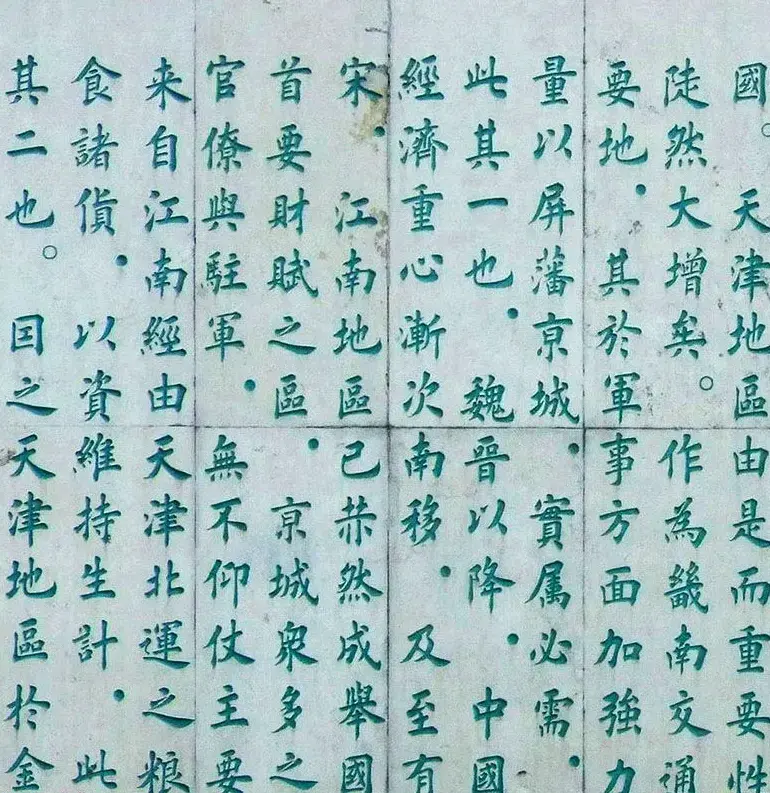 國。天津地區由是而重要性
陡然大增矣。作為畿南交通
要地．其於軍事方面加強力
量以屏藩京城．實属必需．
此其一也．魏晉以降．中國
經濟重心漸次南移．及至有
宋．江南地區已赫然成舉國
首要財賦之區．京城衆多之
官僚與駐軍．無不仰仗主要
来自江南經由天津北運之粮
食諸貨．以資維持生計．此
其二也。因之天津地區於金